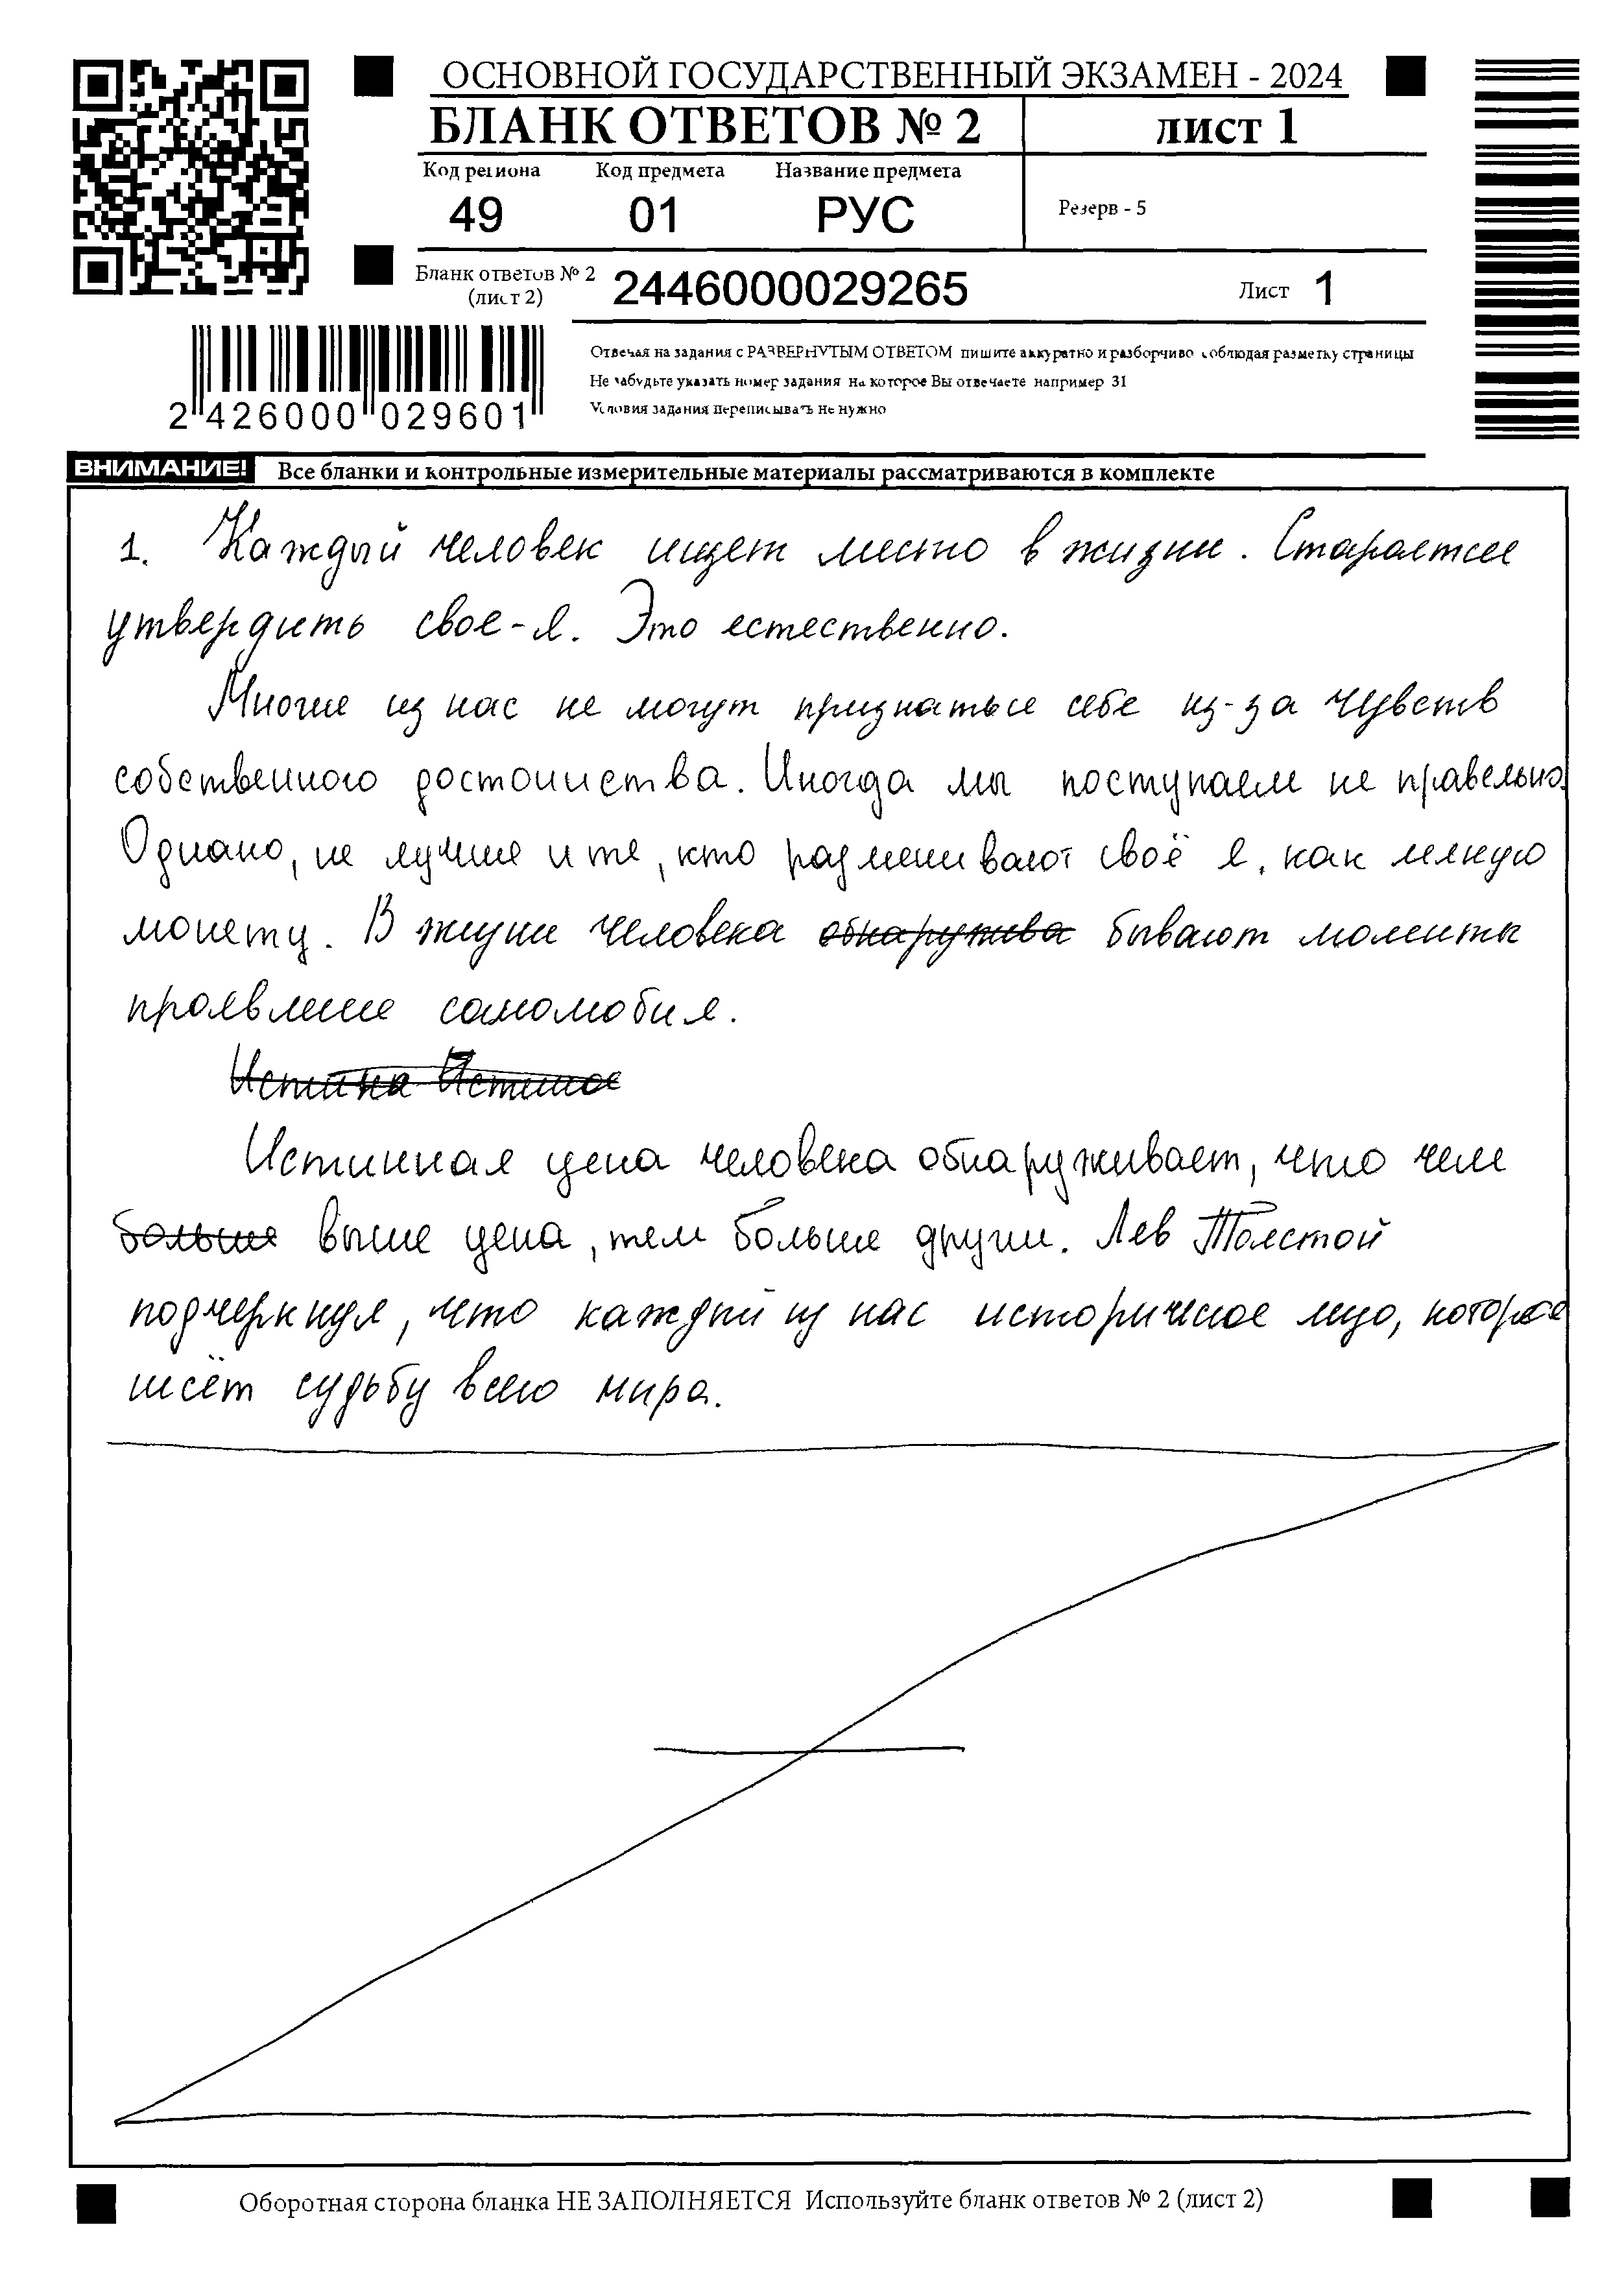 ОСНОВНОЙ ГОСУДАРСТВЕННЫЙ ЭКЗАМЕН - 2024
БЛАНК ОТВЕТОВ № 2
лист 1
Код региона Код предмета Название предмета
49 01 РУС
Резерв - 5
Бланк ответов № 2
(лист 2)
2446000029265
Лист 1
Отвечая на задания с РАЗВЕРНУТЫМ ОТВЕТОМ пишите аккуратно и разборчиво соблюдая разметку страницы
Не забудьте указать номер задания на которое Вы отвечаете например 31
Условия задания переписывать не нужно
2 426000 029601
ВНИМАНИЕ! Все бланки и контрольные измерительные материалы рассматриваются в комплекте
1. Каждый человек ищет место в жизни. Старается
утвердить свое-я. Это естественно.
Многие из нас не могут признаться себе из-за чувств
собственного достоинства. Иногда мы поступаем не правельно.
Однако, не лучше и те, кто разменивают своё я, как мелкую
монету. В жизни человека обнаружива бывают моменты
проявление самолюбия.
Истина Истиное
Истинная цена человека обнаруживает, что чем
больше выше цена, тем больше другии. Лев Толстой
подчеркнул, что каждый из нас историчное лицо, которое
несёт судьбу всего мира.
Оборотная сторона бланка НЕ ЗАПОЛНЯЕТСЯ Используйте бланк ответов № 2 (лист 2)